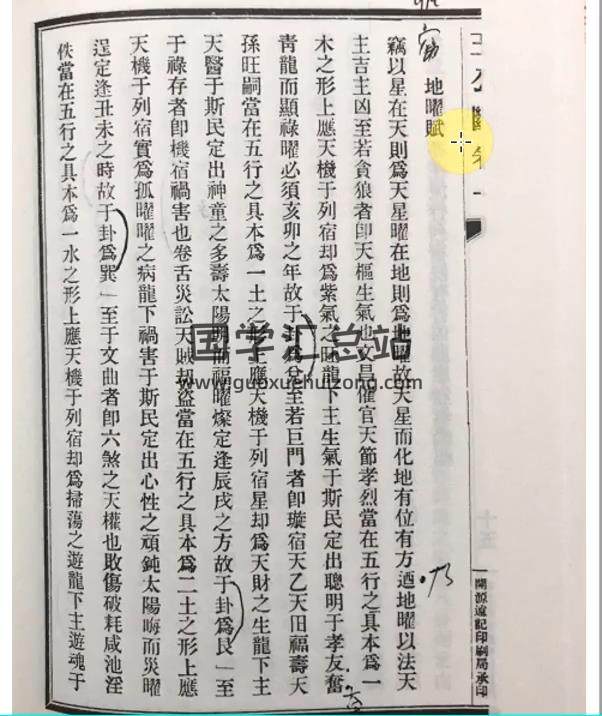 地曜賦
竊以星在天則爲天星曜在地則爲地曜故天星而化地有位有方迺地曜以法天
主吉主凶至若貪狼者卽天樞生氣也文昌催官天節孝烈當在五行之具本爲一
木之形上應天機于列宿却爲紫氣之 龍下主生氣于斯民定出聰明于孝友奮
靑龍而顯祿曜必須亥卯之年故于卦爲兌至若巨門者卽璇宿天乙天田福壽天
孫旺嗣當在五行之具本爲一土之形上應天機于列宿星却爲天財之生龍下主
天醫于斯民定出神童之多壽太陽明而福曜燦定逢辰戌之方故于卦爲艮」至
于祿存者卽機宿禍害也卷舌災訟天賊刼盜當在五行之具本爲二土之形上應
天機于列宿實爲孤曜曜之病龍下禍害于斯民定出心性之頑鈍太陽晦而災曜
逞定逢丑未之時故于卦爲巽」至于文曲者卽六煞之天權也敗傷破耗咸池淫
佚當在五行之具本爲一水之形上應天機于列宿却爲掃蕩之遊龍下主遊魂于
開源遠記印刷局承印
国学汇总站
www.guoxuehuizong.com